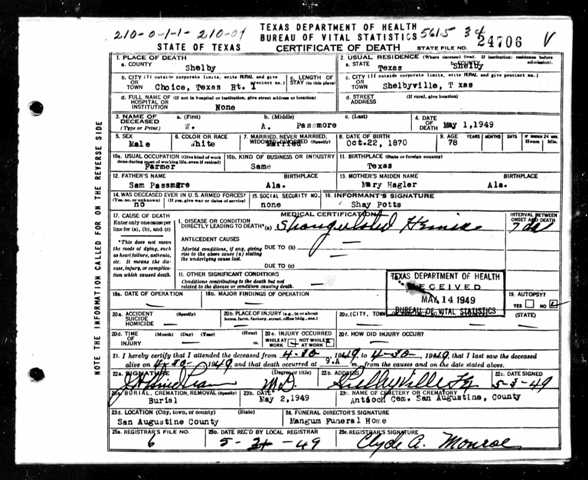 210-0-1-1-210-01 TEXAS DEPARTMENT OF HEALTH 5615
BUREAU OF VITAL STATISTICS
STATE OF TEXAS CERTIFICATE OF DEATH STATE FILE NO. 24706 V
1. PLACE OF DEATH 2. USUAL RESIDENCE (Where deceased lived. If institution: residence before admission)
a. COUNTY Shelby a. STATE Texas b. COUNTY Shelby
b. CITY (If outside corporate limits, write RURAL and give precinct no.) OR TOWN Choice, Texas Rt. 1 c. LENGTH OF STAY (in this place) c. CITY (If outside corporate limits, write RURAL and give precinct no.) OR TOWN Shelbyville, T xas
d. FULL NAME OF (If not in hospital or institution, give street address or location) HOSPITAL OR INSTITUTION None d. STREET ADDRESS (If rural, give location)
3. NAME OF DECEASED a. (First) b. (Middle) A. c. (Last) Passmore 4. DATE OF DEATH May 1,1949
5. SEX Male 6. COLOR OR RACE White 7. MARRIED, NEVER MARRIED, WIDOWED, DIVORCED (Specify) Married 8. DATE OF BIRTH Oct.22, 1870 9. AGE YEARS 78 MONTHS DAYS
10a. USUAL OCCUPATION (Give kind of work done during most of working life, even if retired) Farmer 10b. KIND OF BUSINESS OR INDUSTRY Same 11. BIRTHPLACE (State or foreign country) Texas
12. FATHER'S NAME Sam Passmore BIRTHPLACE Ala. 13. MOTHER'S MAIDEN NAME Mary Hagler BIRTHPLACE Ala.
14. WAS DECEASED EVER IN U.S. ARMED FORCES? no (If yes, give war or dates of service) 15. SOCIAL SECURITY NO. none 16. INFORMANT'S SIGNATURE Shay Potts
17. CAUSE OF DEATH MEDICAL CERTIFICATION INTERVAL BETWEEN ONSET AND DEATH
Enter only one cause per line for (a), (b), and (c) I. DISEASE OR CONDITION DIRECTLY LEADING TO DEATH* (a) Strangulated Hernia 7 da
*This does not mean the mode of dying, such as heart failure, asthenia, etc. It means the disease, injury, or complication which caused death
ANTECEDENT CAUSES DUE TO (b)
Morbid conditions, if any, giving rise to the above cause (a) stating the underlying cause last. DUE TO (c)
II. OTHER SIGNIFICANT CONDITIONS
Conditions contributing to the death but not related to the disease or condition causing death.
TEXAS DEPARTMENT OF HEALTH
RECEIVED
MAY 14 1949
BUREAU OF VITAL STATISTICS
18a. DATE OF OPERATION 18b. MAJOR FINDINGS OF OPERATION 19. AUTOPSY? YES NO
20a. ACCIDENT SUICIDE HOMICIDE (Specify) 20b. PLACE OF INJURY (e.g., in or about home, farm, factory, street, office bldg., etc.) 20c. (CITY, TOWN (STATE)
20d. TIME OF INJURY (Month) (Day) (Year) (Hour) 20e. INJURY OCCURRED WHILE AT WORK NOT WHILE AT WORK 20f. HOW DID INJURY OCCUR?
21. I hereby certify that I attended the deceased from 4-30, 1949, to 4-30, 1949, that I last saw the deceased
alive on 4-30, 1949, and that death occurred at m., from the causes and on the date stated above.
22a. SIGNATURE (Degree or title) M.D. 22b. ADDRESS Shelbyville Tx 22c. DATE SIGNED 5-3-49
23a. BURIAL, CREMATION, REMOVAL (Specify) Burial 23b. DATE May 2,1949 23c. NAME OF CEMETERY OR CREMATORY Antioch Cem. San Augustine, County
23d. LOCATION (City, town, or county) (State) San Augustine County 24. FUNERAL DIRECTOR'S SIGNATURE Mangum Funeral Home
25a. REGISTRAR'S FILE NO. 6 25b. DATE REC'D BY LOCAL REGISTRAR 5- -49 25c. REGISTRAR'S SIGNATURE Clyde A. Monroe
NOTE THE INFORMATION CALLED FOR ON THE REVERSE SIDE